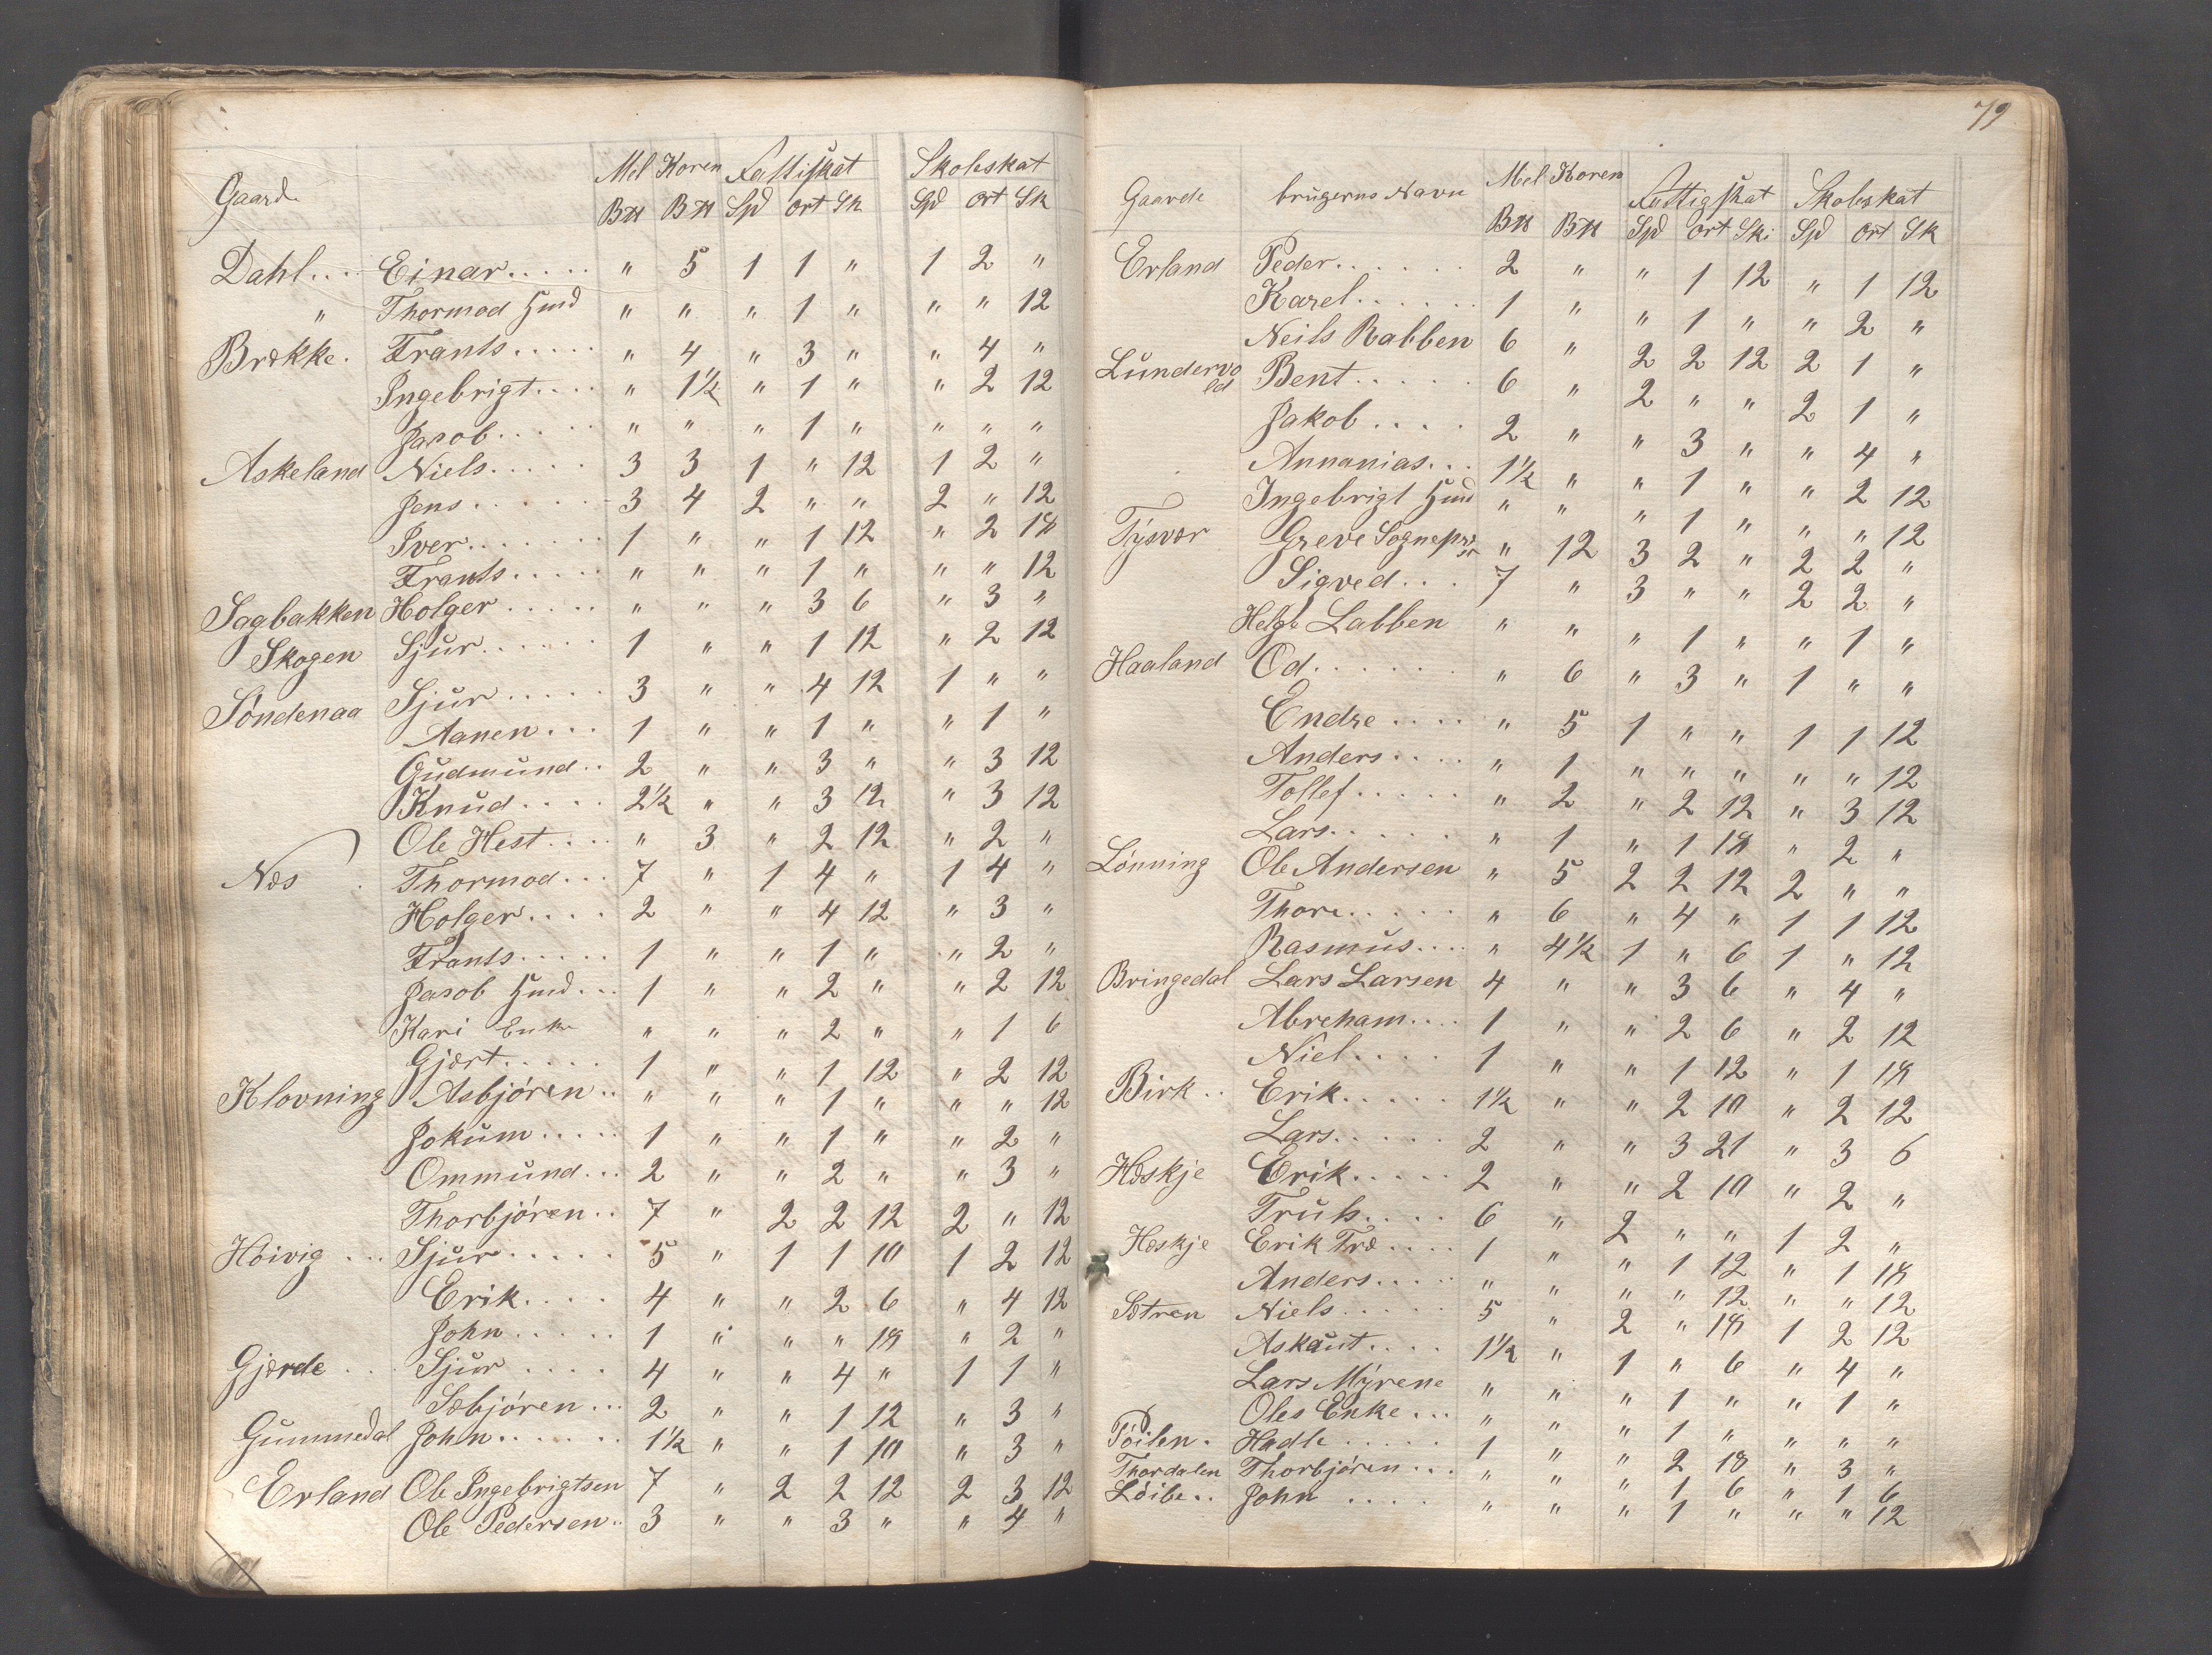 Mel Koren Fattiskat Skoleskat
Gaard B℔ B℔ Spd ort Sk Spd ort Sk
Dahl.... Einar..... " 5 1 1 " 1 2 "
" Thormod Hmd " " " 1 " " " 12
Brække. Frants..... " 4 " 3 " " 4 "
Ingebrigt.... " 1½ " 1 " " 2 12
Jacob..... " " " 1 " " " "
Askeland Niels..... 3 3 1 " 12 1 2 "
Jens...... 3 4 2 " " 2 " 12
Iver....... 1 " " 1 12 " 2 18
Frants..... " " " 1 " " " 12
Sagbakken Holger..... " " " 3 6 " 3 "
Skogen Sjur..... 1 " " 1 12 " 2 12
Söndenaa Sjur..... 3 " " 4 12 1 " "
Aanen... 1 " " 1 " " 1 "
Gudmund.. 2 " " 3 " " 3 12
Knud.... 2½ " " 3 12 " 3 12
Ole Hest.... " 3 " 2 12 " 2 "
Næs . Thormod... 7 " 1 4 " 1 4 "
Holger.... 2 " " 4 12 " 3 "
Frants..... 1 " " 1 " " 2 "
Jacob Hmd... 1 " " 2 " " 2 12
Kari Enke " " " 2 " " 1 6
Gjært..... 1 " " 1 12 " 2 12
Klovning Asbjören.. " " " 1 " " " 12
Jokum..... 1 " " 1 " " 2 "
Ommund... 2 " " 2 " " 3 "
Thorbjören.. 7 " 2 2 12 2 " 12
Höivig ... Sjur..... 5 " 1 1 10 1 2 12
Erik.... 4 " " 2 6 " 4 12
John..... 1 " " " 18 " 2 "
Gjærde .. Sjur.... 4 " " 4 " 1 1 "
Sæbjören... 2 " " 1 12 " 3 "
Gummedal John...... 1½ " " 1 10 " 3 "
Erland Ole Ingebrigtsen 7 " 2 2 12 2 3 12
Ole Pedersen.. 3 " " 3 " " 4 "
79
Mel Koren Fattigskat Skoleskat
Gaarde brugerns Navn B℔ B℔ Spd ort Ski Spd ort Sk
Erland Peder...... 2 " " 1 12 " 1 12
Karel...... 1 " " 1 " " 2 "
Neils Rabben 6 " 2 2 12 2 1 "
Lundervold Bent..... 6 " 2 " " 2 1 "
Jakob.... 2 " " 3 " " 4 "
Annanias... 1½ " " 1 " " 2 12
Ingebrigt Hmd " " " 1 " " " 12
Tysvær Greve Sognepr " 12 3 2 " 2 2 "
Sigved... 7 " 3 " " 2 2 "
Helge Labben " " " 1 " " 1 "
Haaland Od..... " 6 " 3 " 1 " "
Endre.... " 5 1 " " 1 1 12
Anders.... " 1 " " " " " 12
Tollef..... " 2 " 2 12 " 3 12
Lars...... " 1 " 1 18 " 2 "
Lönning Ole Andersen " 5 2 2 12 2 " "
Thore..... " 6 " 4 " 1 1 12
Rasmus.... " 4½ 1 " 6 1 " 12
Bringedal Lars Larsen 4 " " 3 6 " 4 "
Abreham.... 1 " " 2 6 " 2 12
Niel.... 1 " " 1 12 " 1 18
Birk.. Erik..... 1½ " " 2 10 " 2 12
Lars..... 2 " " 3 21 " 3 6
Hæskje Erik..... 2 " " 2 10 " 2 "
Truls.... 6 " 2 " " 1 2 "
Hæskje Erik Træ.... 1 " " 1 12 " 1 18
Anders.... " " " " 12 " " 12
Sætren Niels..... 5 " 2 " 18 1 2 12
Askaut.... 1½ " 1 " 6 " 4 "
Lars Myrene " " " 1 " " 1 "
Oles Enke... " " " 1 " " " "
Póilen. Hadle..... 1 " " 2 18 " 3 "
Thordalen Thorbjören... " " " 1 6 " 1 6
Löibe.. John .... " " " 1 " " " 12